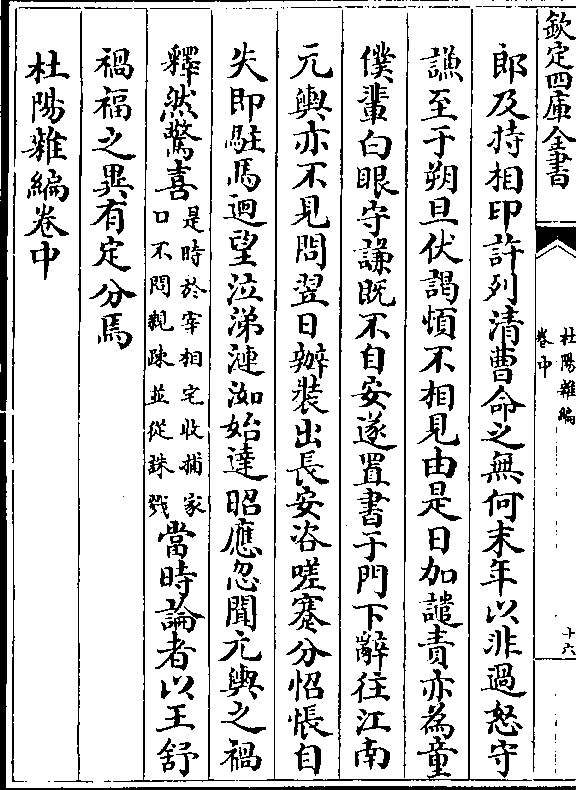 欽定四庫全書
杜陽雜編
卷中
十六
郎及持相印許列清曹命之無何末年以非過怒守
謙至于朔旦伏謁頓不相見由是日加譴責亦為童
僕輩白眼守謙既不自安遂置書于門下辭往江南
元輿亦不見問翌日辦裝出長安咨嗟蹇分怊悵自
失即駐馬迴望泣涕漣洳始達昭應忽聞元輿之禍
釋然驚喜是時於宰相宅收捕家口不問親疎並從誅戮當時論者以王舒
禍福之異有定分焉
杜陽雜編卷中